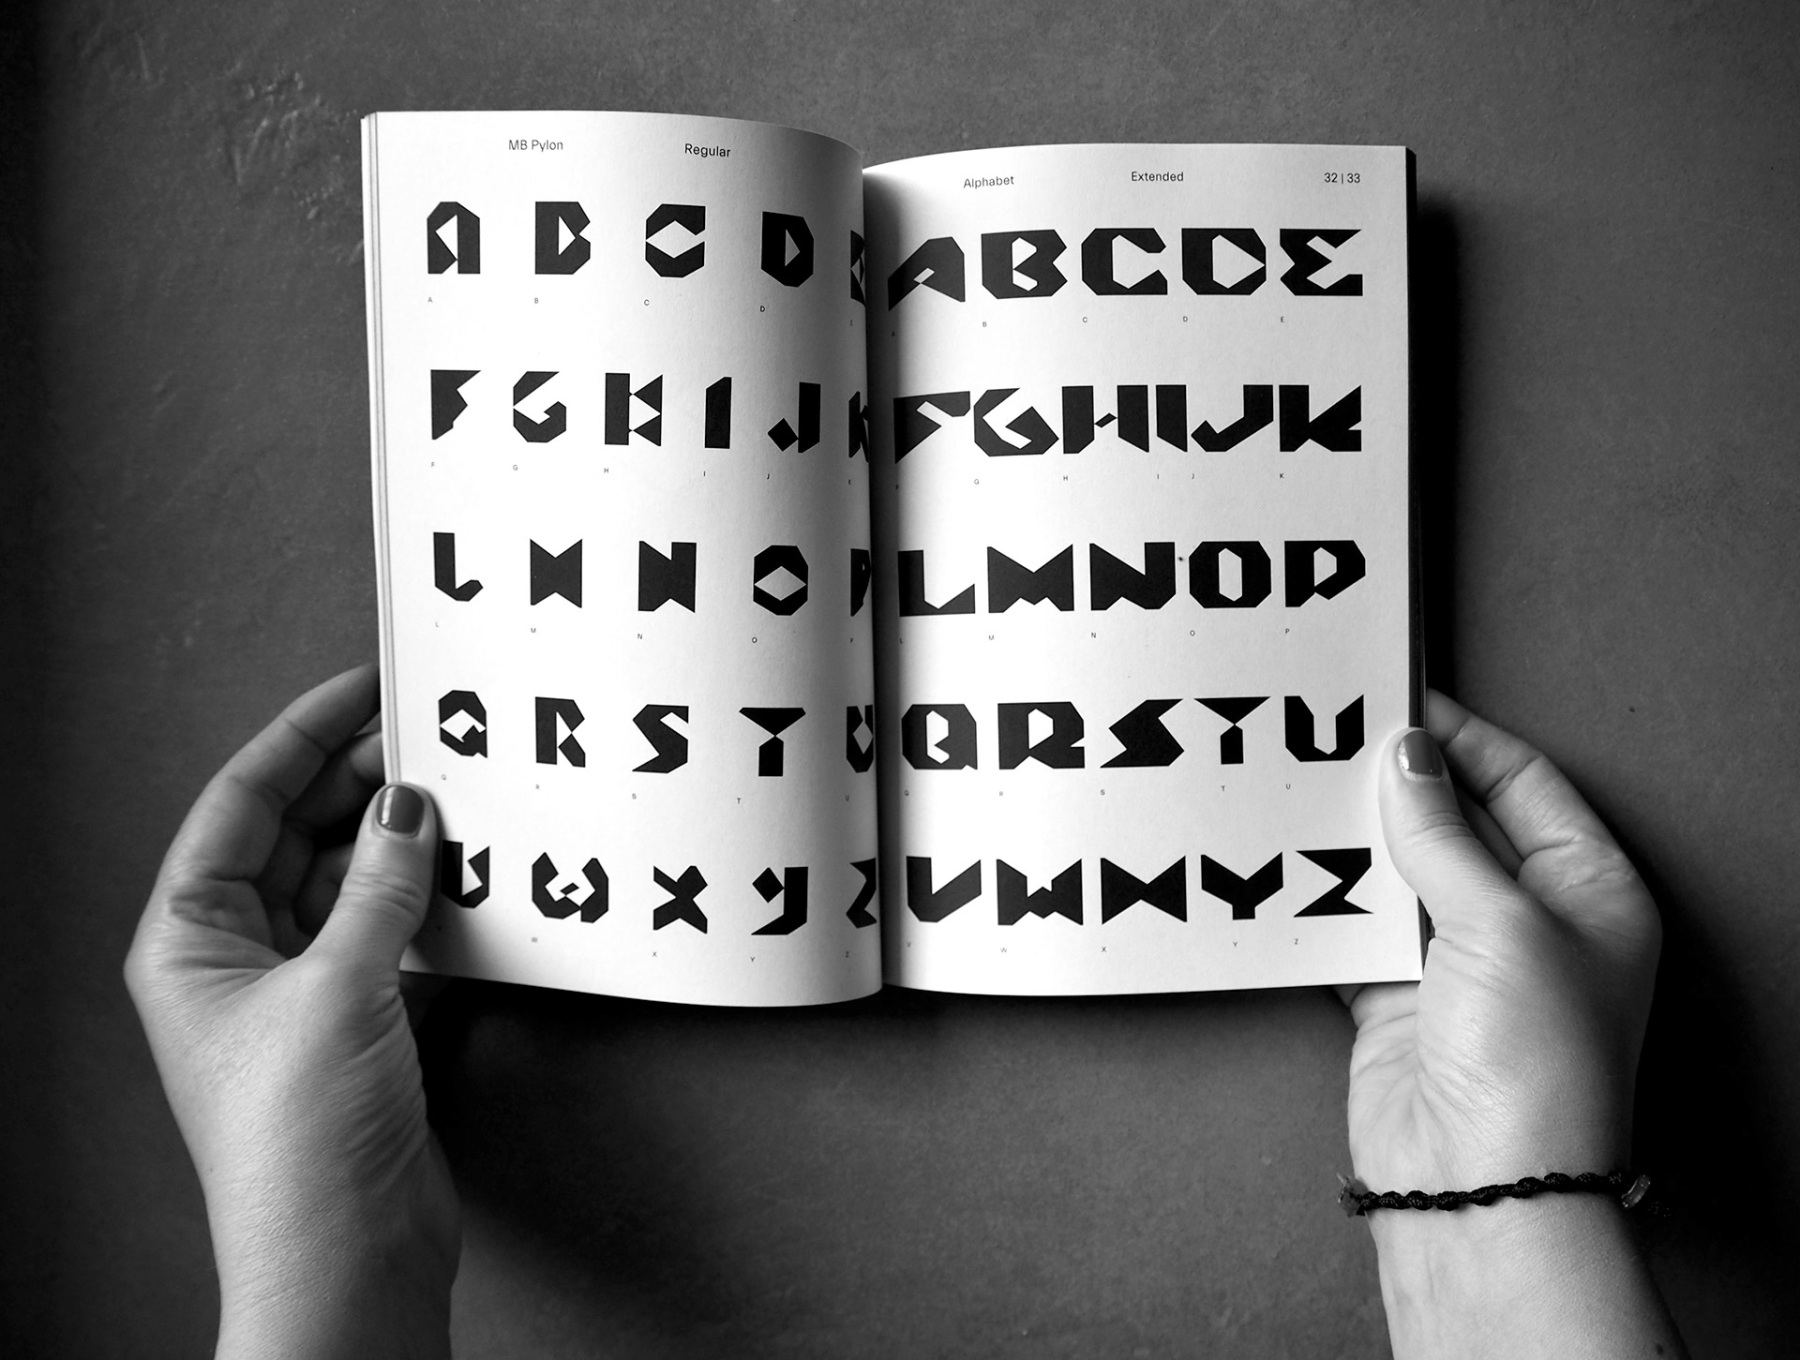 MB Pylon Regular
A B C D E
A B C D E
F G H I J K
F G H I J K
L M N O P
L M N O P
Q R S T U
Q R S T U
V W X Y Z
W X Y Z
Alphabet Extended 32 | 33
A B C D E
A B C D E
F G H I J K
F G H I J K
L M N O P
L M N O P
Q R S T U
Q R S T U
V W X Y Z
V W X Y Z